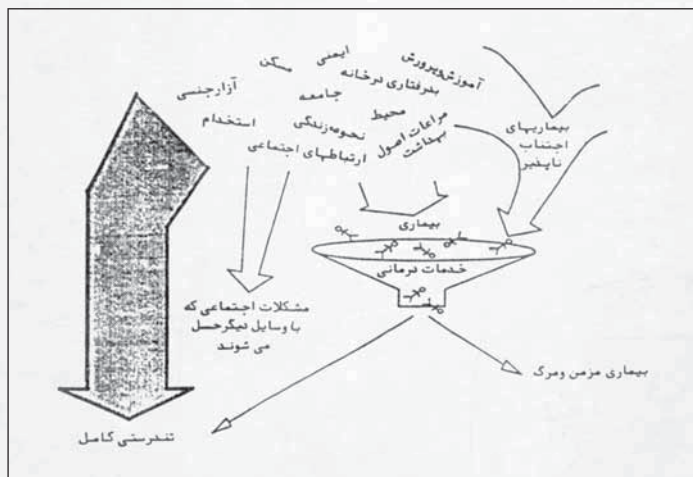 آموزش‌وپرورش
ایمنی
مسکن
بدرفتاری درخانه
آزارجنسی
جامعه
محیط
مراعات اصول
بهداشت
نحوه زندگی
استخدام
ارتباطهای اجتماعی
بیماریهای
اجتناب
ناپذیر
بیماری
خدمات درمانی
مشکلات اجتماعی که
با وسایل دیگرحل
می شوند
بیماری مزمن ومرگ
تندرستی کامل